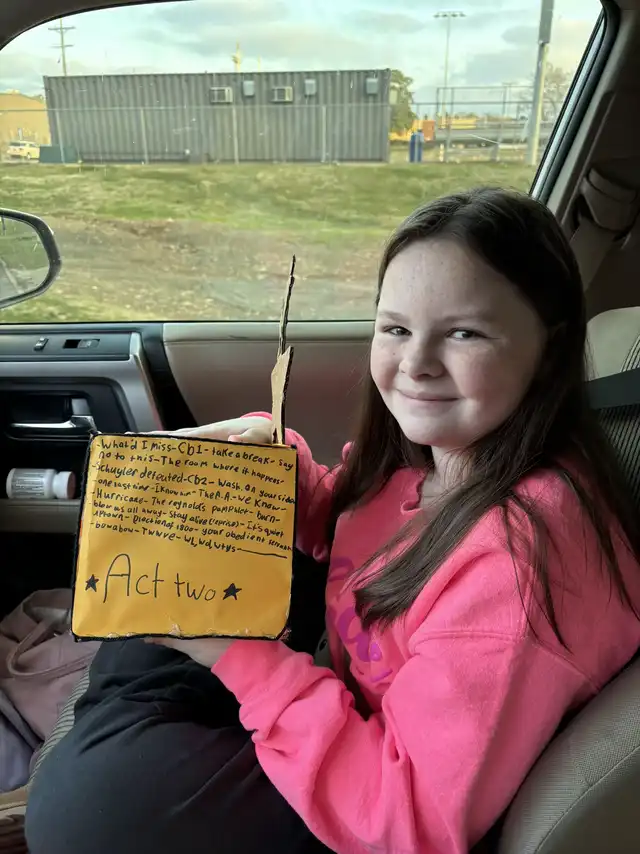 -What'd I miss-Cb1-take a break-say
no to this-The room where it happens-
Schuyler defeated-Cb2-Wash on your side
one last time-I know him-The A.A-We Know-
Hurricane-The reynolds pamphlet-burn-
blow us all away-Stay alive(reprise)-It's quiet
uptown-Election of 1800-your obedient servant
-bowabow-Twwve-Wl,wd,wtys-
★Act two★